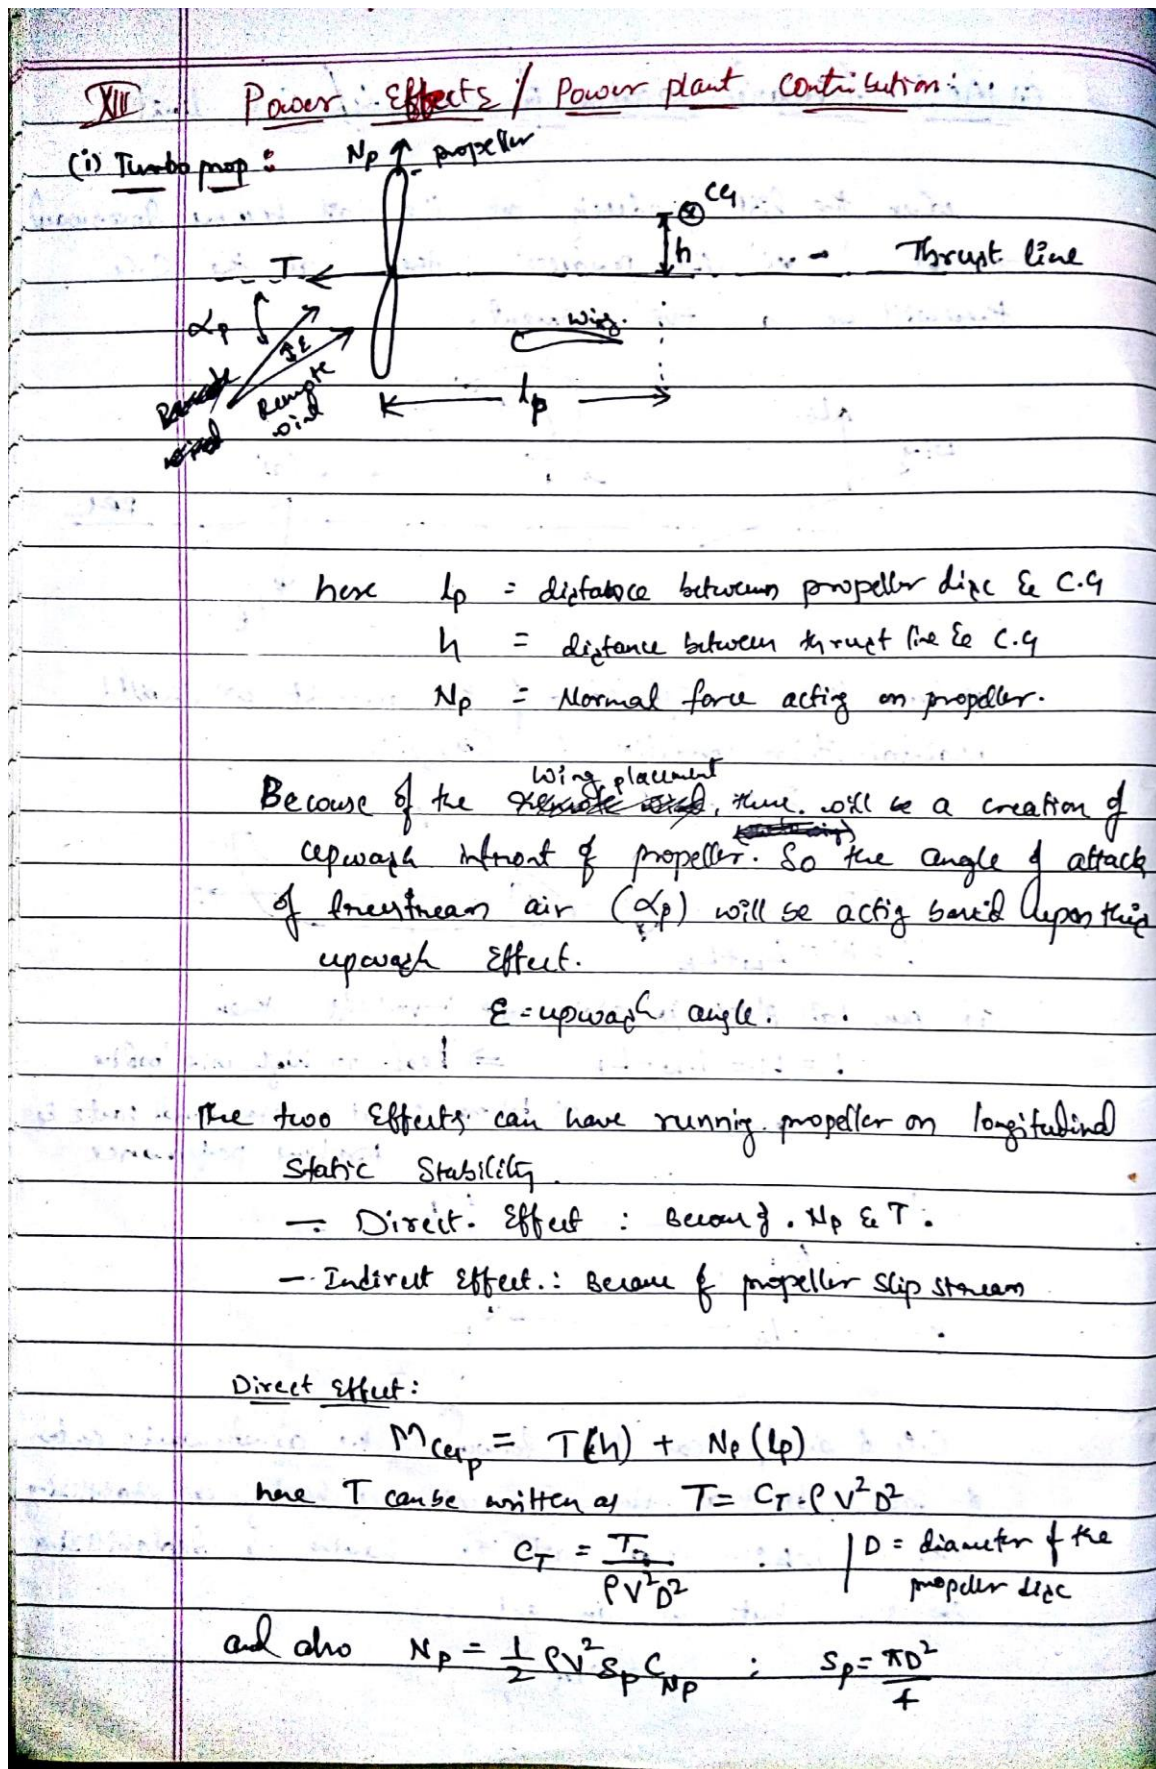 XIII Power Effects / Power plant contribution:
(i) Turbo prop :
Np propeller
CG
h
T
Thrust line
αp
ε
wing.
Remote
wind
lp
here lp = distance between propeller disc & C.G
h = distance between thrust line & C.G
Np = Normal force acting on propeller.
wing placement
Because of the , there will be a creation of
upwash infront of propeller. So the angle of attack
of freestream air (αp) will be actig based upon this
upwash Effect.
ε = upwash angle.
The two Effects can have running propeller on longitudinal
Static Stability.
- Direct. Effect : Because of . Np & T.
- Indirect Effect.: Because of propeller slip stream
Direct Effect:
M_CG_p = T(h) + Np (lp)
here T can be written as T = C_T . ρ V² D²
C_T = T / ρV²D² | D = diameter of the
propeller disc
and also Np = 1/2 ρV² Sp C_Np ; Sp = πD²/4